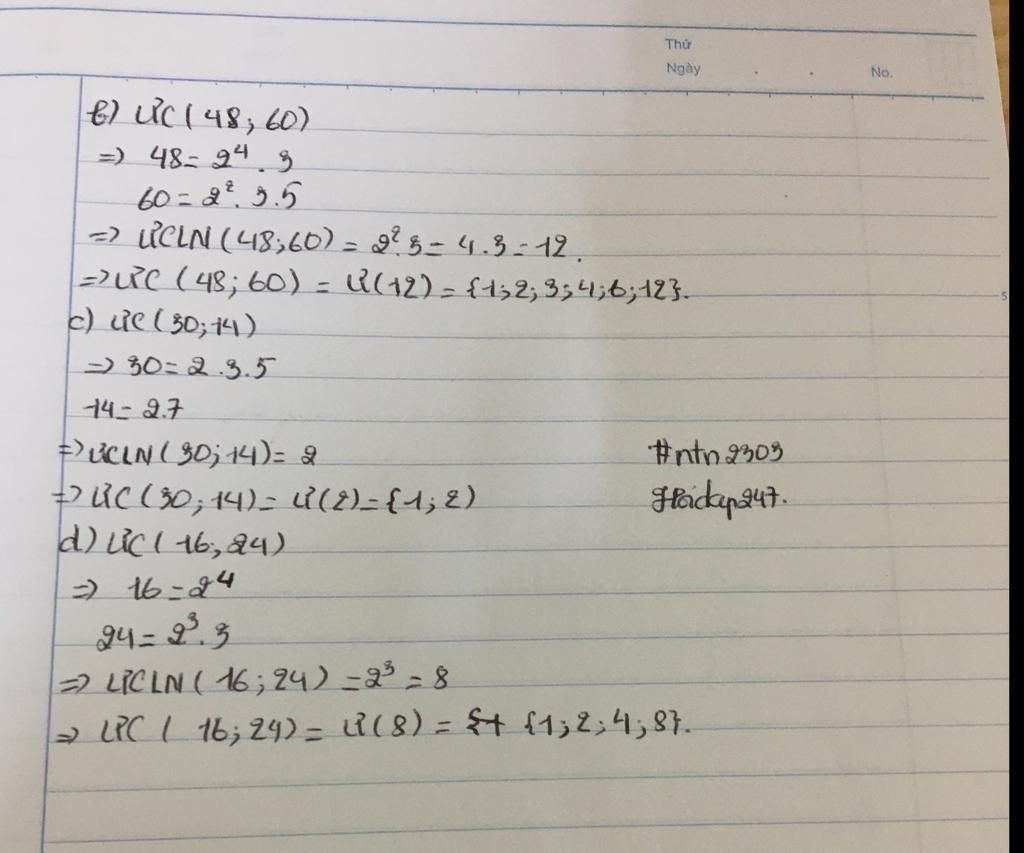 Thứ
Ngày . . No.
b) ƯC (48; 60)
=> 48 = 2⁴ . 3
60 = 2² . 3 . 5
=> ƯCLN (48; 60) = 2² . 3 = 4 . 3 = 12.
=> ƯC (48; 60) = Ư(12) = {1; 2; 3; 4; 6; 12}.
5
c) ƯC (30; 14)
=> 30 = 2 . 3 . 5
14 = 2.7
=> ƯCLN (30; 14) = 2
#ntn2303
=> ƯC (30; 14) = Ư(2) = {1; 2)
d) ƯC (16; 24)
=> 16 = 2⁴
24 = 2³ . 3
=> ƯCLN (16; 24) = 2³ = 8
=> ƯC ( 16; 24) = Ư(8) = {1; 2; 4; 8}.